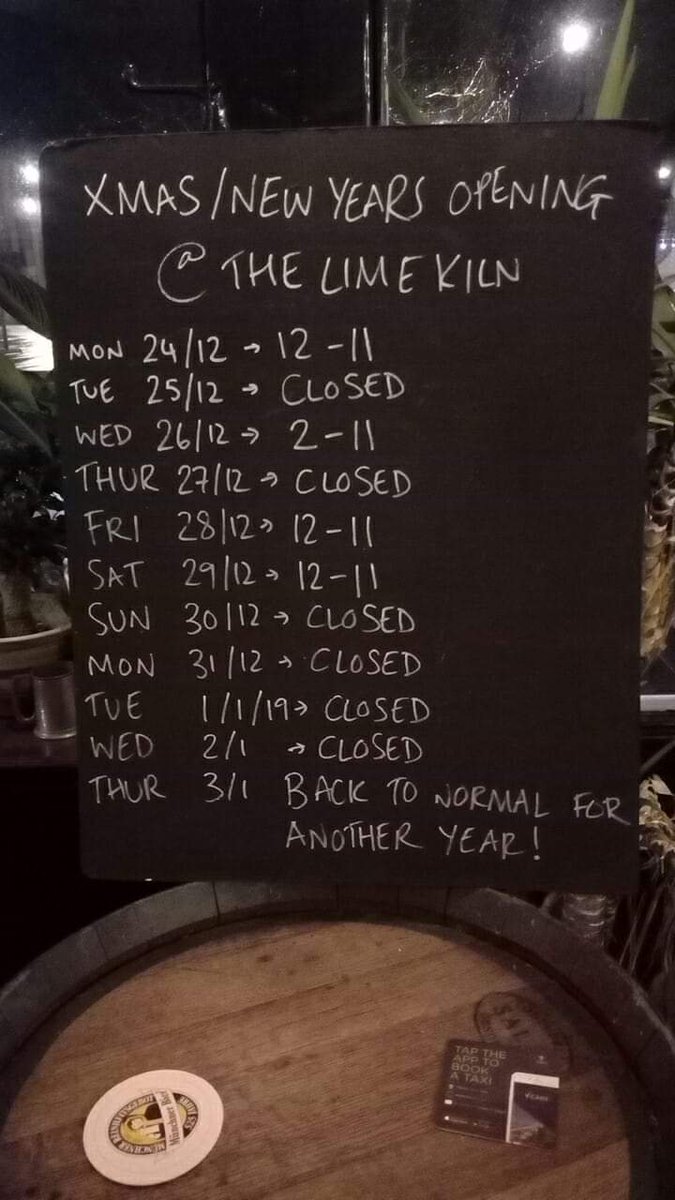 XMAS/NEW YEARS OPENING
@ THE LIME KILN
MON 24/12 → 12-11
TUE 25/12 → CLOSED
WED 26/12 → 2-11
THUR 27/12 → CLOSED
FRI 28/12 → 12-11
SAT 29/12 → 12-11
SUN 30/12 → CLOSED
MON 31/12 → CLOSED
TUE 1/1/19 → CLOSED
WED 2/1 → CLOSED
THUR 3/1 BACK TO NORMAL FOR
ANOTHER YEAR!
TAP THE
APP TO
BOOK
A TAXI